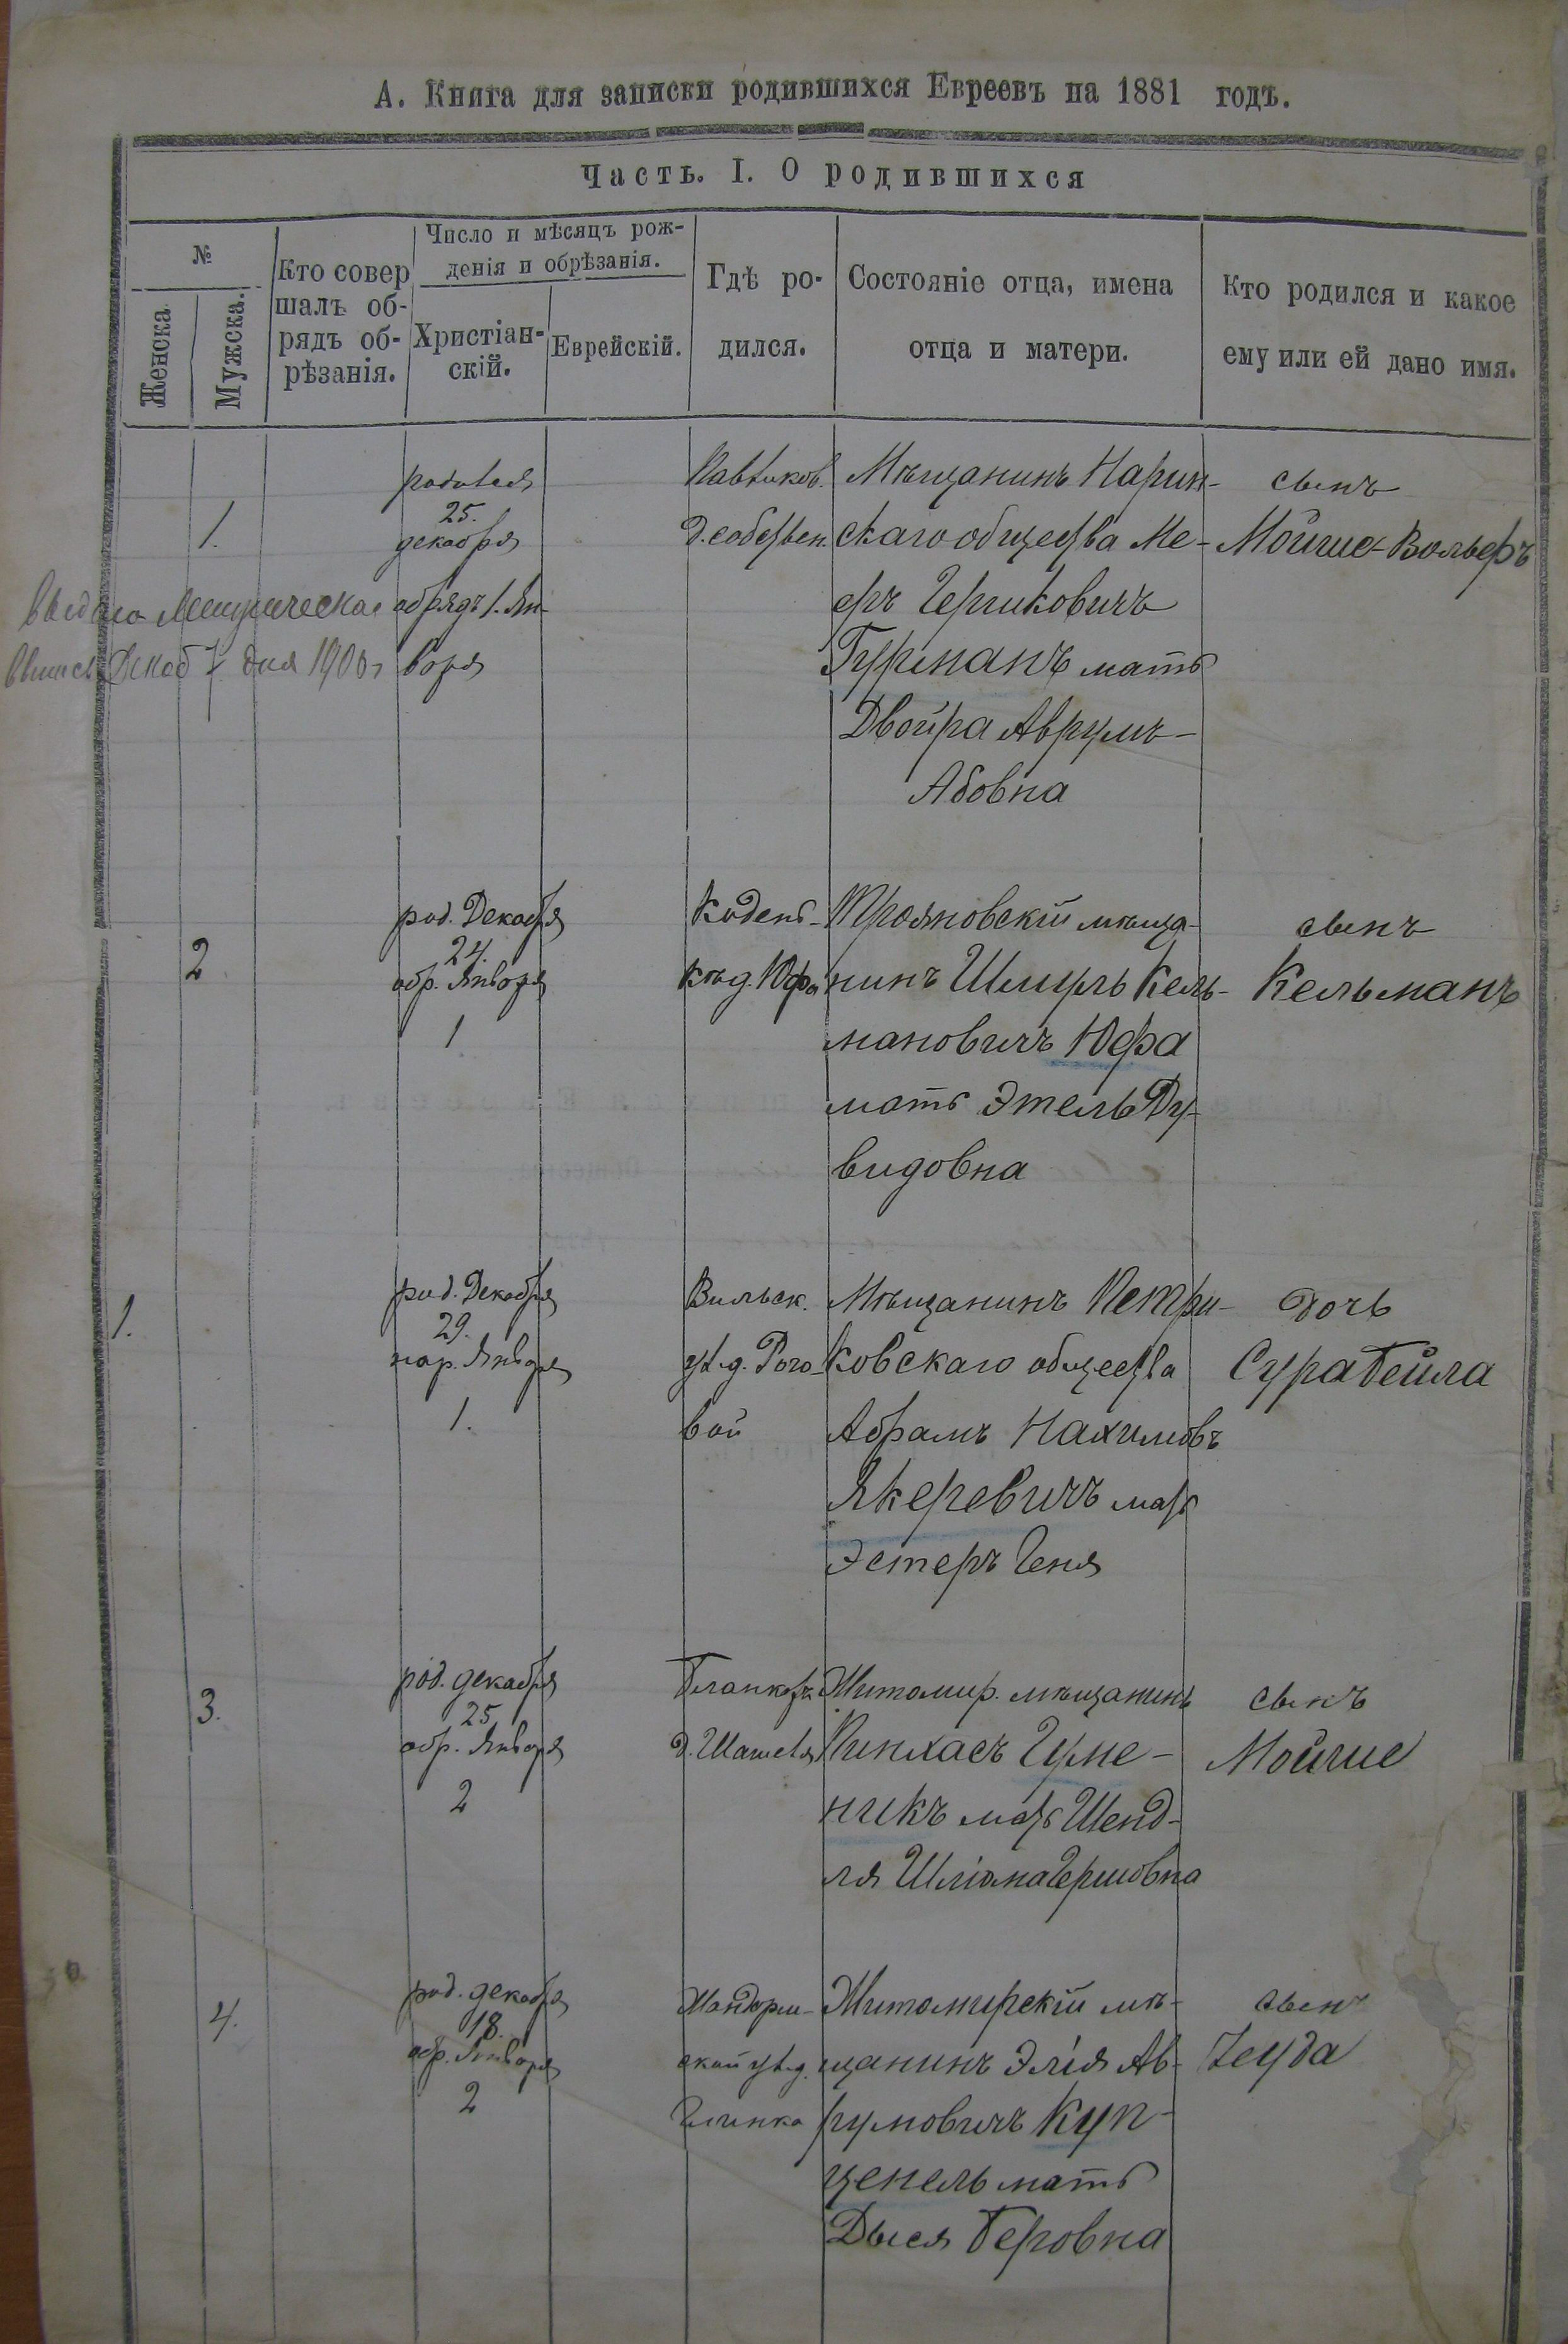 А. Книга для записки родившихся Евреевъ на 1881 годъ.
Часть. I. О родившихся
№
Женска
Мужска.
Кто совер
шалъ об-
рядъ об-
рѣзанія.
Число и мѣсяцъ рож-
денія и обрѣзанія.
Христіан-
скій.
Еврейскій.
Гдѣ ро-
дился.
Состояніе отца, имена
отца и матери.
Кто родился и какое
ему или ей дано имя.
1.
родился
25.
декабря
обрядъ 1. Ян-
воря
д. собствен.
Мѣщанинъ Нарин-
скаго общества Ме-
еръ Гершковичъ
Гурманъ мать
Двойра Аврумъ-
Абовна
сынъ
Мойше-Вольфъ
выдано Метрическая
Декаб 7 дня 1900 г
2
род. Декабря
24.
обр. Января
1
Кодень-
кѣ д. Юфа
Трояновскій мѣща-
нинъ Шмуль Кель-
мановичъ Юфа
мать Этель Ду-
видовна
сынъ
Кельманъ
1.
род. Декабря
29.
нар. Января
1.
Вильск.
ул. д. Рого-
вой
Мѣщанинъ Петри-
ковскаго общества
Абрамъ Нахимовъ
Якеревичъ мать
Эстеръ Геня
дочь
Сура Бейла
3.
род. декабря
25
обр. Января
2
д.
Житомир. мѣщанинъ
Пинхасъ Гуме-
никъ мать Шенд-
ля Шліома Гершовна
сынъ
Мойше
4.
род. декабря
18.
обр. Января
2
Жандарм-
ской ул. д.
Глинка
Житомирскій мѣ-
щанинъ Элія Ав-
румовичъ Куп-
ценель мать
Дыся Беровна
сынъ
Іеуда